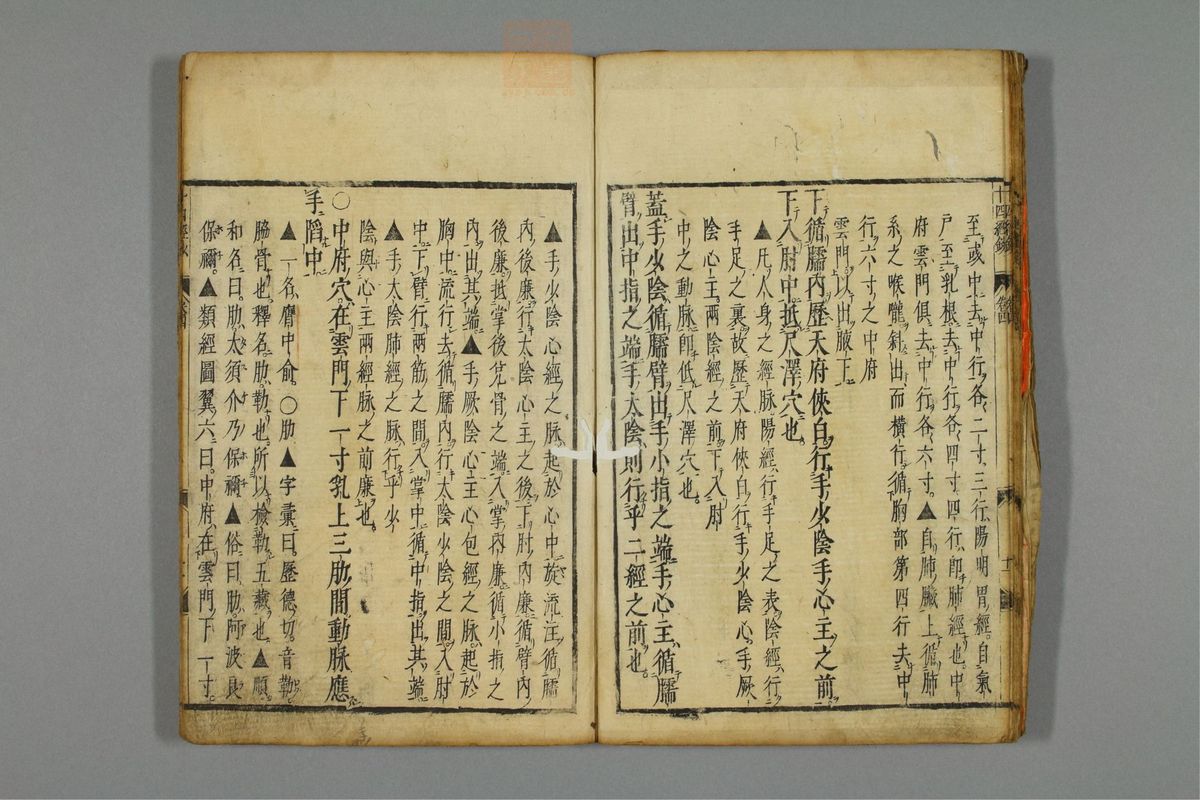 至或中去中行各二寸三行陽明胃經自氣
戸至乳根去中行各四寸四行即肺經也中
府雲門俱去中行各六寸▲自肺臟上循肺
系之喉嚨斜出而横行循胸部第四行去中
行六寸之中府
雲門以出腋下
下循臑内歷天府俠白行手少陰手心主之前
下入肘中抵尺澤穴也
▲凡人身之經脉陽經行手足之表陰經行
手足之裏故歷天府俠白行手少陰心手厥
陰心主兩陰經之前下入肘
中之動脉即低尺澤穴也
蓋手少陰循臑臂出手小指之端手心主循臑
臂出中指之端手太陰則行乎二經之前也
▲手少陰心經之脉起於心中旋流注循臑
内後廉行太陰心主之後下肘内廉循臂内
後廉抵掌後兌骨之端入掌内廉循小指之
内出其端▲手厥陰心主心包經之脉起於
胸中流行去循臑内行太陰少陰之間入肘
中下臂行兩筋之間入掌中循中指出其端
▲手太陰肺經之脉行乎少
陰與心主兩經脉之前廉也
〇中府穴在雲門下一寸乳上三肋間動脉應
手陷中
▲一名膺中俞〇肋▲字彙曰歷德切音勒
脇骨也釋名肋勒也所以檢勒五藏也▲順
和名曰肋太須介乃保禰▲俗曰肋阿波良
保禰▲類經圖翼六曰中府在雲門下一寸